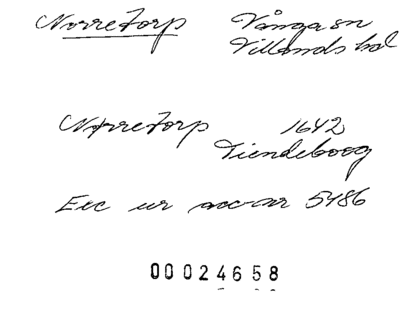 Norretorp Vånga sn
Villands hd
Nørretorp 1642
Tiendeboog
Exc ur acc-nr 5486
00024658